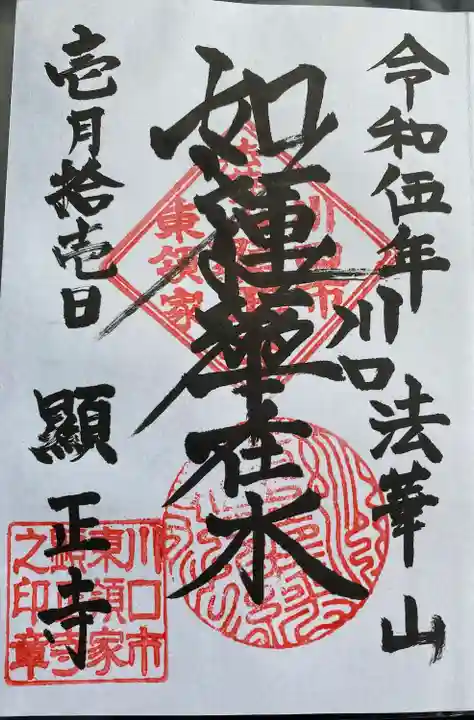 令和伍年
川口
法華山
如蓮華在水
壱月拾壱日
顯正寺
川口市
東領家
川口市
東領家
顕正寺
之印章